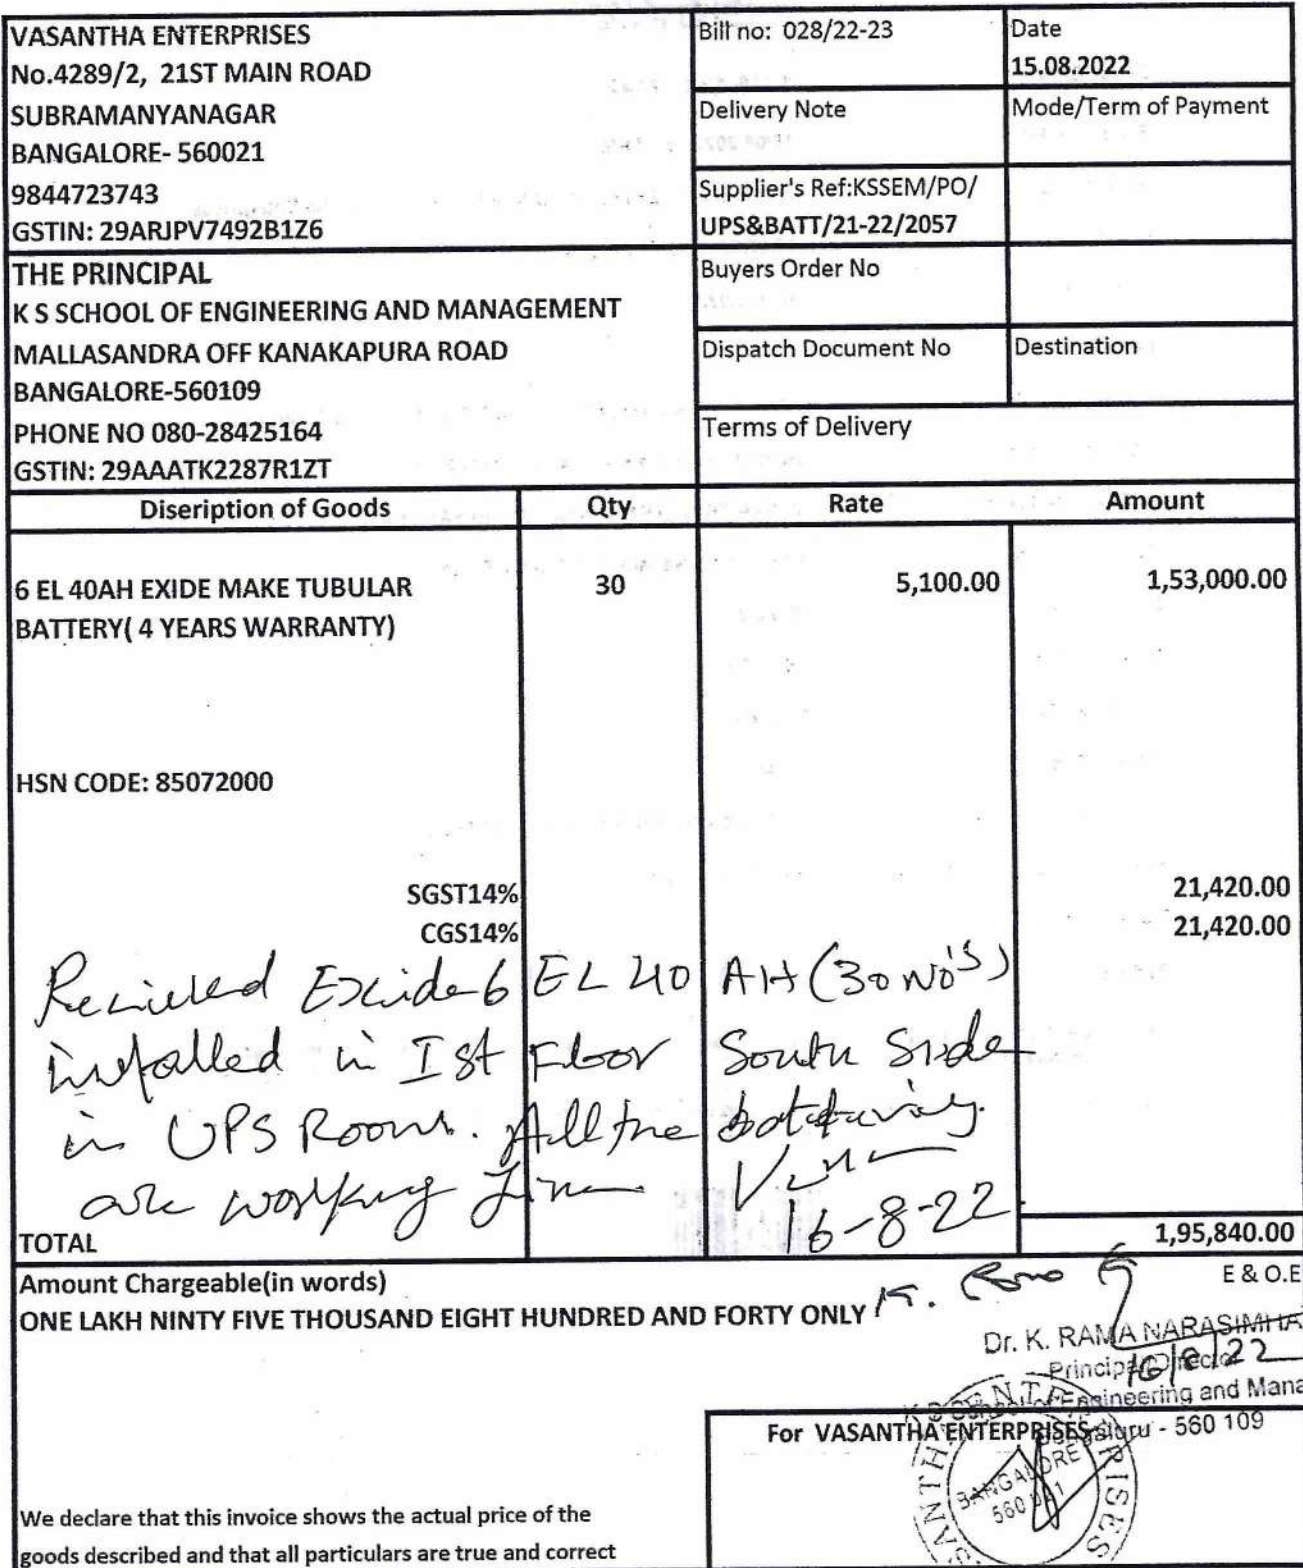 VASANTHA ENTERPRISES
No.4289/2, 21ST MAIN ROAD
SUBRAMANYANAGAR
BANGALORE- 560021
9844723743
GSTIN: 29ARJPV7492B1Z6
Bill no: 028/22-23
Date
15.08.2022
Delivery Note
Mode/Term of Payment
Supplier's Ref:KSSEM/PO/
UPS&BATT/21-22/2057
THE PRINCIPAL
K S SCHOOL OF ENGINEERING AND MANAGEMENT
MALLASANDRA OFF KANAKAPURA ROAD
BANGALORE-560109
PHONE NO 080-28425164
GSTIN: 29AAATK2287R1ZT
Buyers Order No
Dispatch Document No
Destination
Terms of Delivery
Diseription of Goods Qty Rate Amount
6 EL 40AH EXIDE MAKE TUBULAR 30 5,100.00 1,53,000.00
BATTERY( 4 YEARS WARRANTY)
HSN CODE: 85072000
SGST14% 21,420.00
CGS14% 21,420.00
Recieved Exide 6 EL 40 AH (30 No's)
installed in Ist Floor South Side
in UPS Room. All the
are working fine
16-8-22
TOTAL 1,95,840.00
Amount Chargeable(in words)
E & O.E
ONE LAKH NINTY FIVE THOUSAND EIGHT HUNDRED AND FORTY ONLY
Dr. K. RAMA NARASIMHA
Principal/Director
16/8/22
K S School of Engineering and Mana
Bengaluru - 560 109
For VASANTHA ENTERPRISES
VASANTHA ENTERPRISES
BANGALORE
560 021
We declare that this invoice shows the actual price of the
goods described and that all particulars are true and correct